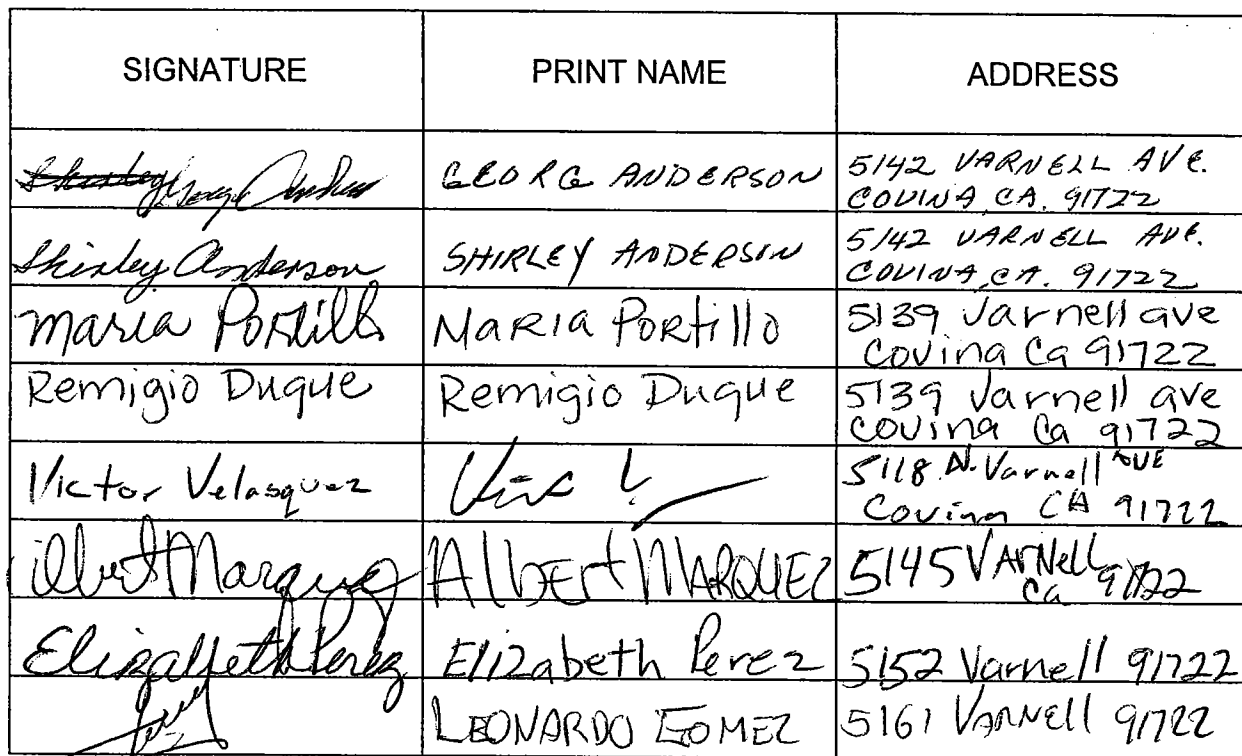 SIGNATURE PRINT NAME ADDRESS
George Anderson GEORG ANDERSON 5142 VARNELL AVE.
COVINA CA. 91722
Shirley Anderson SHIRLEY ANDERSON 5142 VARNELL AVE.
COVINA, CA. 91722
Maria Portillo MARIA PORtillo 5139 Varnell ave
Covina Ca 91722
Remigio Duque Remigio Duque 5139 Varnell ave
Covina Ca 91722
Victor Velasquez 5118 N. Varnell AVE
Covina CA 91722
Albert Marquez AlbErt MARQUEZ 5145 VArNell
Ca 91722
Elizabeth Perez Elizabeth Perez 5152 Varnell 91722
LEONARDO GOMEZ 5161 VARNEll 91722